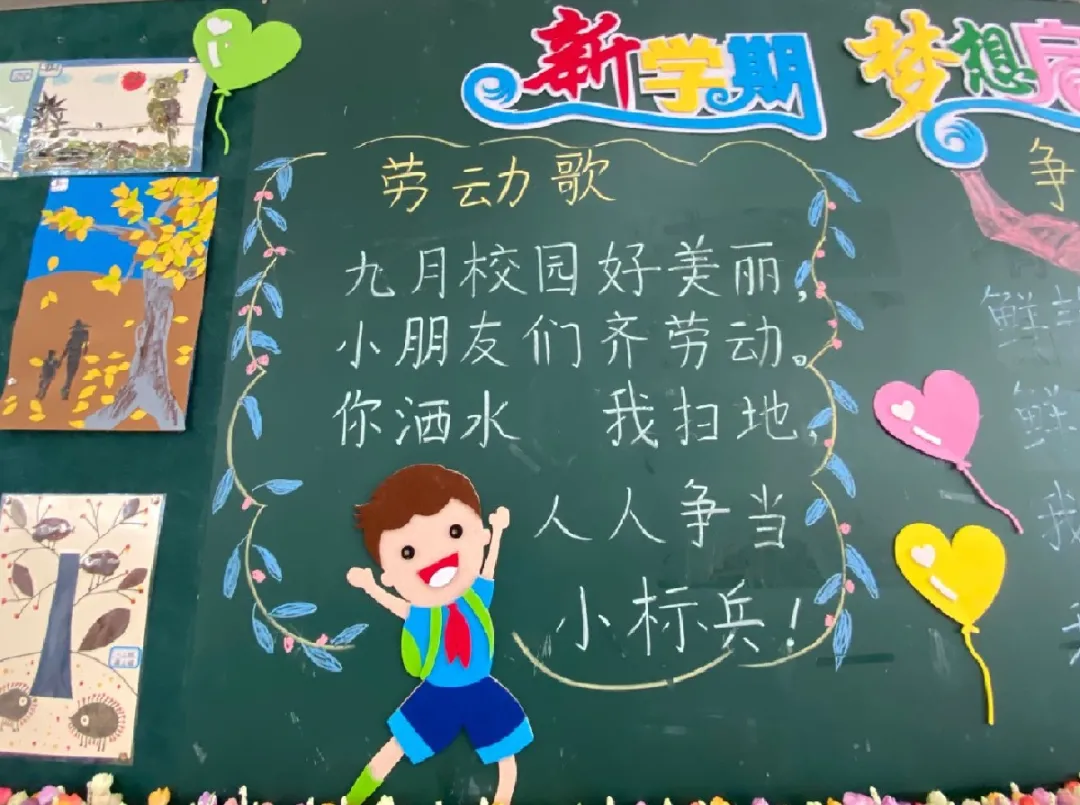 新学期
梦想启
劳动歌
九月校园好美丽，
小朋友们齐劳动。
你洒水 我扫地，
人人争当
小标兵！
争
鲜
鲜
我